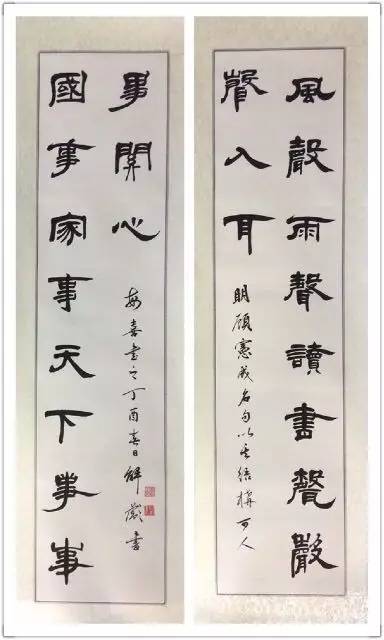 風聲雨聲讀書聲聲
聲入耳
明顧憲成名句以其結構可人
國事家事天下事事
事關心
每喜書之丁酉春日解嚴書